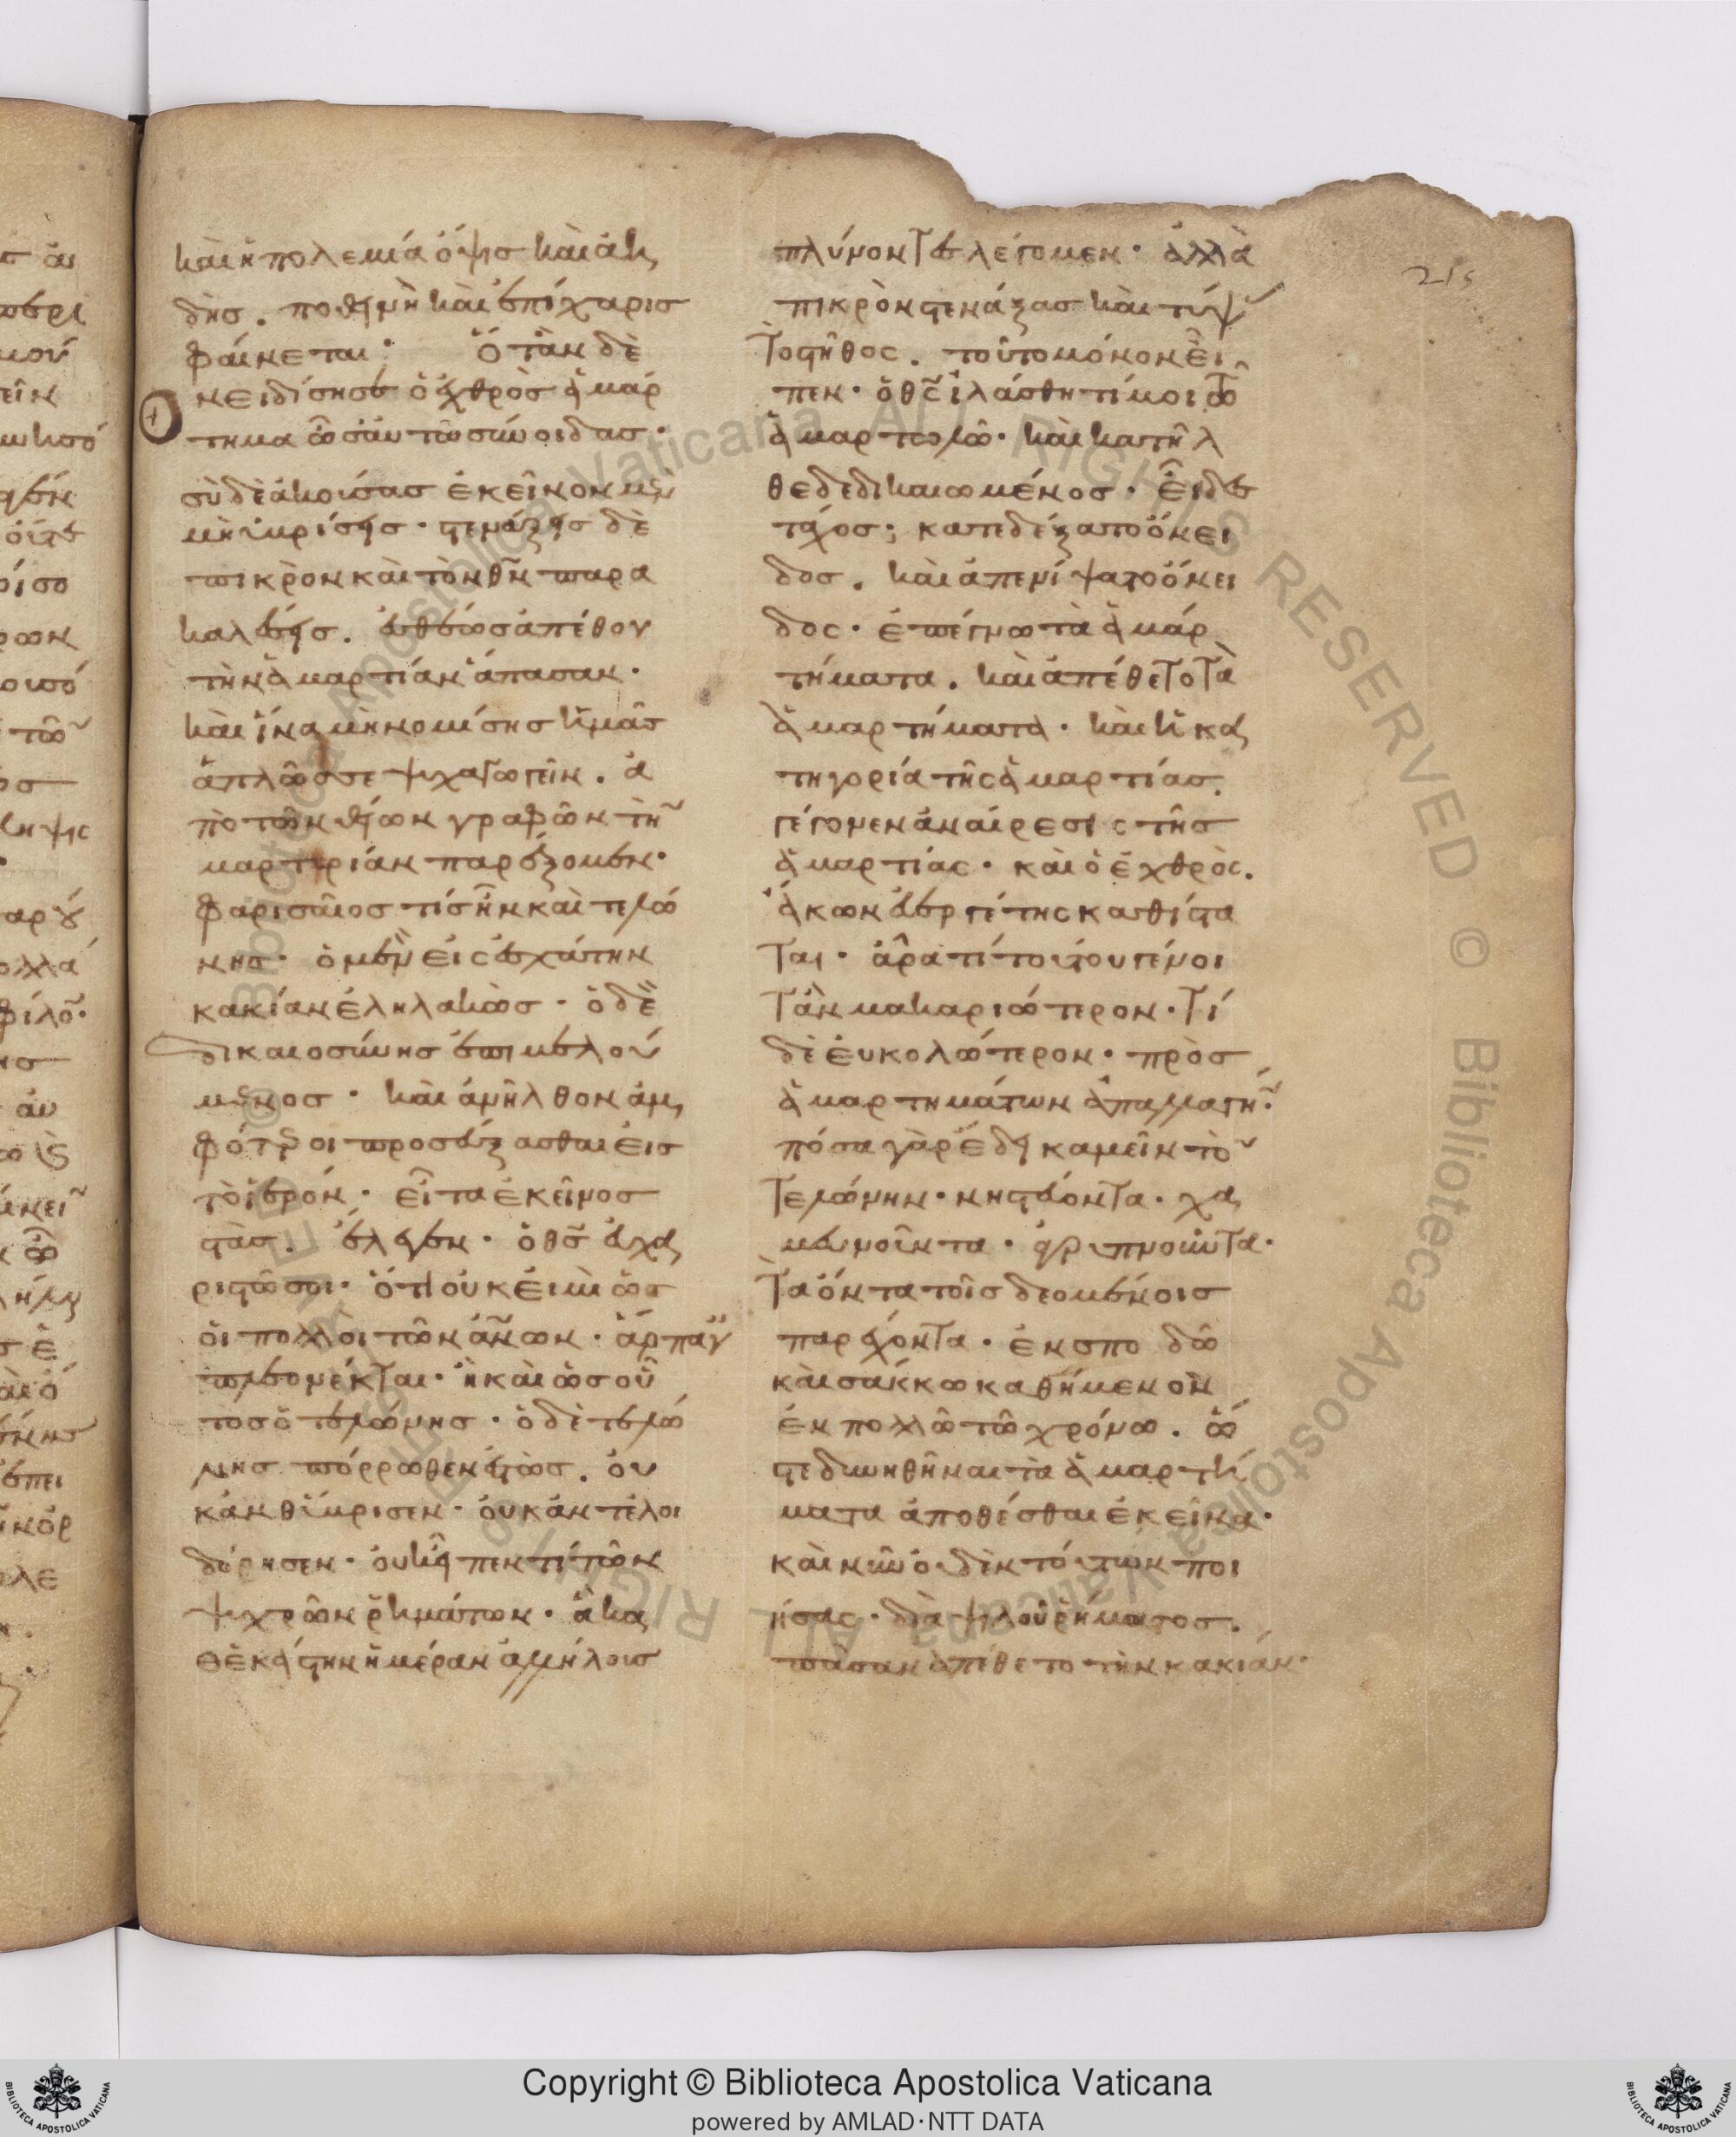 καὶ ἡ πολεμία ὄψις καὶ ἀη
δὴς. ποθεινὴ καὶ ἐπίχαρις
φαίνεται· Ὅταν δὲ
νειδίσησε ὁ ἐχθρὸς ἁμάρ
τημα ὃ σαυτῶ σύνοιδας·
σὺ δὲ ἀκούσας ἐκεῖνον μὲν
μὴ ὑβρίσης· στενάξης δὲ
πικρὸν καὶ τὸν θν παρα
καλέσης. εὐθέως ἀπέθου
τὴν ἁμαρτίαν ἅπασαν·
καὶ ἵνα μὴ νομίσης ἡμᾶς
ἁπλῶς σε ψυχαγωγεῖν. ἀ
πὸ τῶν θείων γραφῶν τὴν
μαρτυρίαν παρέξομεν·
φαρισαῖος τίς ἦν καὶ τελώ
νης· ὁ μὲν εἰς ἐσχάτην
κακίαν ἐληλακὼς· ὁ δὲ
δικαιοσύνης ἐπιμελού
μενος· καὶ ἀνῆλθον ἀμ
φότεροι προσεύξασθαι εἰς
τὸ ἱερόν· εἶτα ἐκεῖνος
στὰς. ἔλεγεν· ὁ θς εὐχα
ριστῶ σοι· ὅτι οὐκ εἰμὶ ὡς
οἱ πολλοὶ τῶν ἀνων· ἅρπαγες
πλεονέκται· ἢ καὶ ὡς οὗ
τος ὁ τελώνης· ὁ δὲ τελώ
νης πόρρωθεν ἑστὼς. οὐ
κ ἀνθύβρισεν· οὐκ ἀντελοι
δόρησεν· οὐκ εἶπεν τί τῶν
ψυχρῶν ῥημάτων· ἃ κα
θ ἑκάστην ἡμέραν ἀλλήλοις
πλύνοντες λέγομεν· ἀλλὰ
πικρὸν στενάξας καὶ τύψας
τὸ στῆθος. τοῦτο μόνον εἶ
πεν· ὁ θς ἱλάσθητί μοι τῶ
ἁμαρτωλῶ· καὶ κατῆλ
θε δεδικαιωμένος· εἶδες
τάχος; κατεδέξατο ὄνει
δος. καὶ ἀπενίψατο ὄνει
δος· ἐπέγνω τὰ ἁμαρ
τήματα. καὶ ἀπέθετο τὰ
ἁμαρτήματα· καὶ ἡ κα
τηγορία τῆς ἁμαρτίας.
γέγονεν ἀναίρεσις τῆς
ἁμαρτίας· καὶ ὁ ἐχθρὸς.
ἄκων εὐεργέτης καθίστα
ται· ἆρα τί τούτου γένοι
τ ἂν μακαριώτερον· τί
δὲ εὐκολώτερον· πρὸς
ἁμαρτημάτων ἀπαλλαγήν·
πόσα γὰρ ἔδει καμεῖν τὸν
τελώνην· νηστεύοντα· χα
μευνοῦντα· ἀγρυπνοῦντα·
τὰ ὄντα τοῖς δεομένοις
παρέχοντα· ἐν σποδῶ
καὶ σάκκω καθήμενον
ἐν πολλῶ τῶ χρόνω. ὥ
στε δυνηθῆναι τὰ ἁμαρτή
ματα ἀποθέσθαι ἐκεῖνα·
καὶ νῦν οὐδὲν τούτων ποι
ήσας· διὰ ψιλοῦ ῥήματος.
πᾶσαν ἀπέθετο τὴν κακίαν·
Copyright © Biblioteca Apostolica Vaticana
powered by AMLAD·NTT DATA